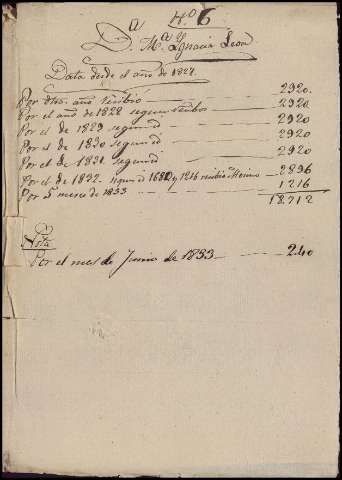 N.o 6
D.a M.a Ygnacia Leon
Data desde el año de 1827.
Por dho. año recibió 2920.
Por el año de 1828 segun recibos 2920
Por el de 1829 segun id 2920
Por el de 1830 segun id 2920
Por el de 1831 segun id 2920
Por el de 1832 segun id 1680 y 1216 recibió 2896
Por 5 meses de 1833 1216
18712
Nota
Por el mes de Junio de 1833 240